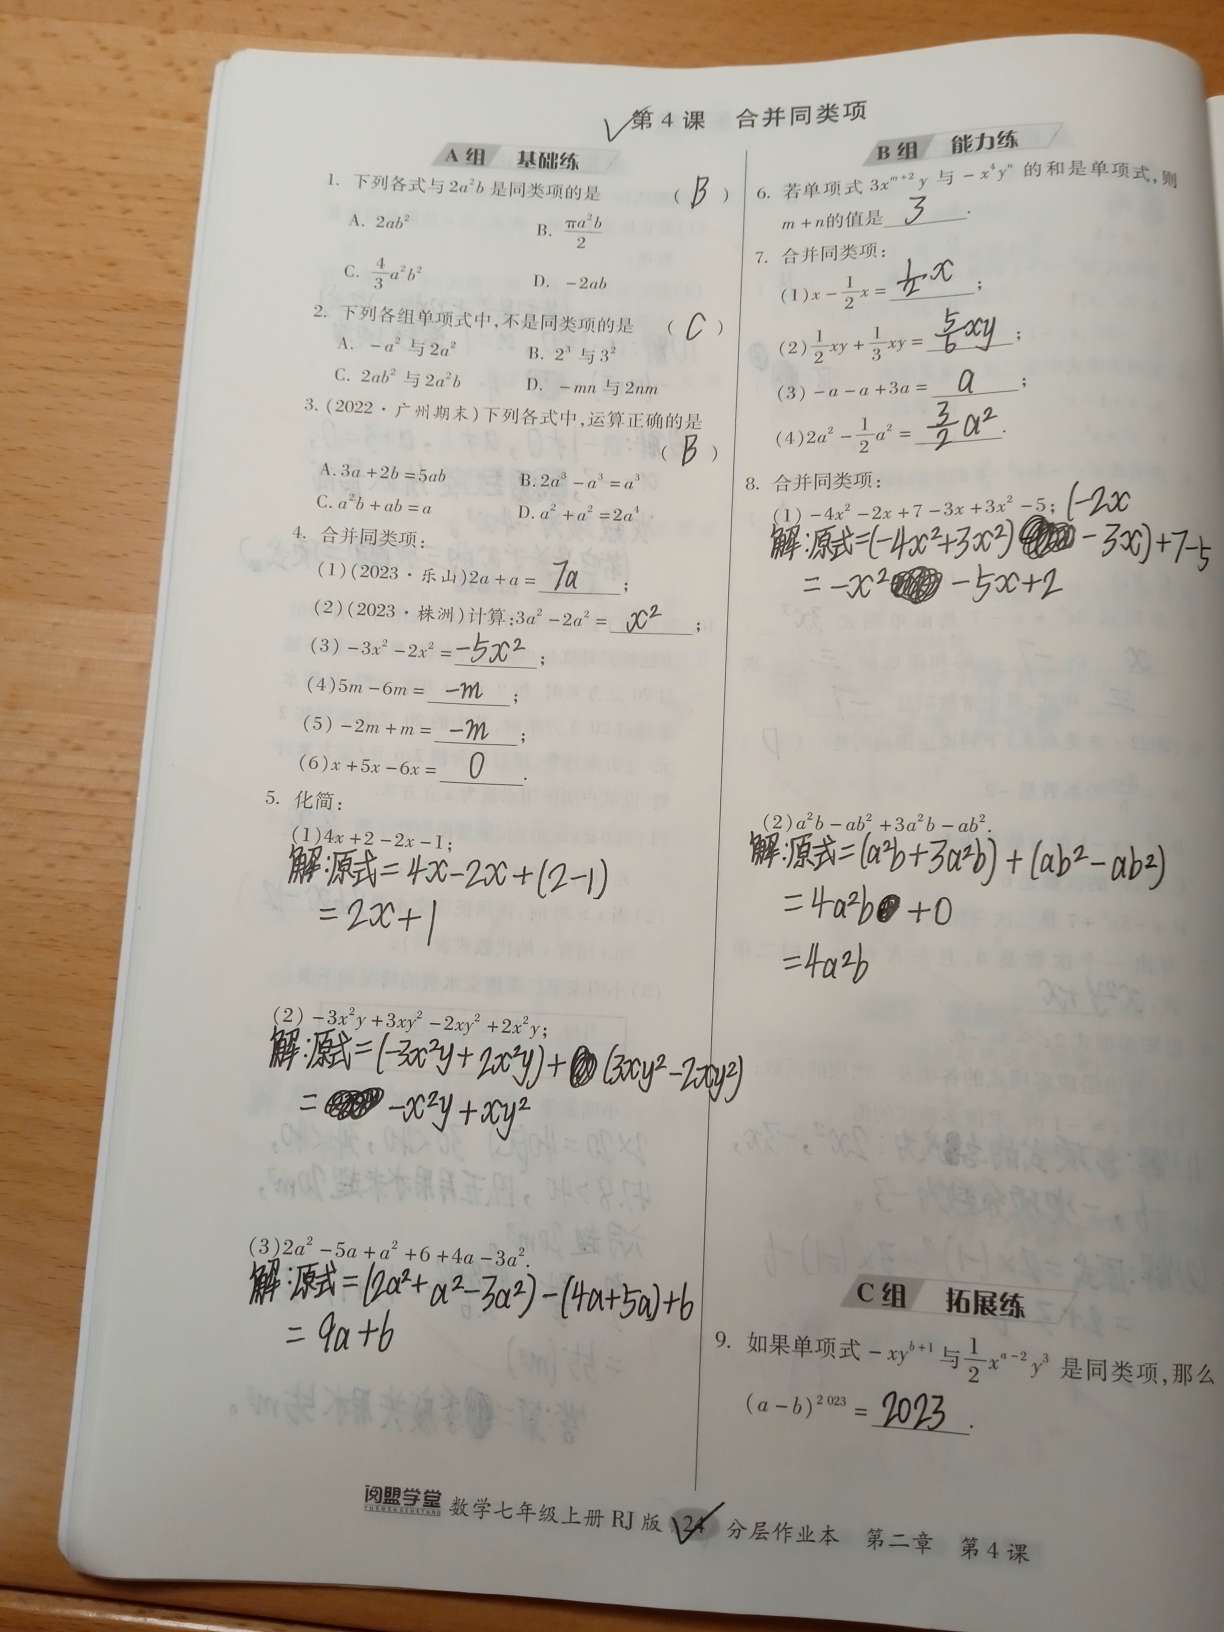 第4课 合并同类项
A组 基础练
1. 下列各式与2a²b是同类项的是 ( B )
A. 2ab² B. πa²b/2
C. 4/3a²b² D. -2ab
2. 下列各组单项式中,不是同类项的是 ( C )
A. -a²与2a² B. 2³与3²
C. 2ab²与2a²b D. -mn与2nm
3. (2022·广州期末)下列各式中,运算正确的是
( B )
A. 3a+2b=5ab B. 2a³-a³=a³
C. a²b+ab=a D. a²+a²=2a⁴
4. 合并同类项:
(1)(2023·乐山)2a+a= 7a ;
(2)(2023·株洲)计算:3a²-2a²= x² ;
(3)-3x²-2x²= -5x² ;
(4)5m-6m= -m ;
(5)-2m+m= -m ;
(6)x+5x-6x= 0 .
5. 化简:
(1)4x+2-2x-1;
解:原式=4x-2x+(2-1)
=2x+1
(2)-3x²y+3xy²-2xy²+2x²y;
解:原式=(-3x²y+2x²y)+(3xy²-2xy²)
=-x²y+xy²
(3)2a²-5a+a²+6+4a-3a².
解:原式=(2a²+a²-3a²)-(4a+5a)+6
=9a+6
B组 能力练
6. 若单项式3xᵐ⁺²y与-x⁴yⁿ的和是单项式,则
m+n的值是 3 .
7. 合并同类项:
(1)x-1/2x= 1/2x ;
(2)1/2xy+1/3xy= 5/6xy ;
(3)-a-a+3a= a ;
(4)2a²-1/2a²= 3/2a² .
8. 合并同类项:
(1)-4x²-2x+7-3x+3x²-5; (-2x
解:原式=(-4x²+3x²) -3x)+7-5
=-x² -5x+2
(2)a²b-ab²+3a²b-ab².
解:原式=(a²b+3a²b)+(ab²-ab²)
=4a²b+0
=4a²b
C组 拓展练
9. 如果单项式-xyᵇ⁺¹与1/2xᵃ⁻²y³是同类项,那么
(a-b)²⁰²³= 2023 .
阅盟学堂 数学七年级上册RJ版 24 分层作业本 第二章 第4课